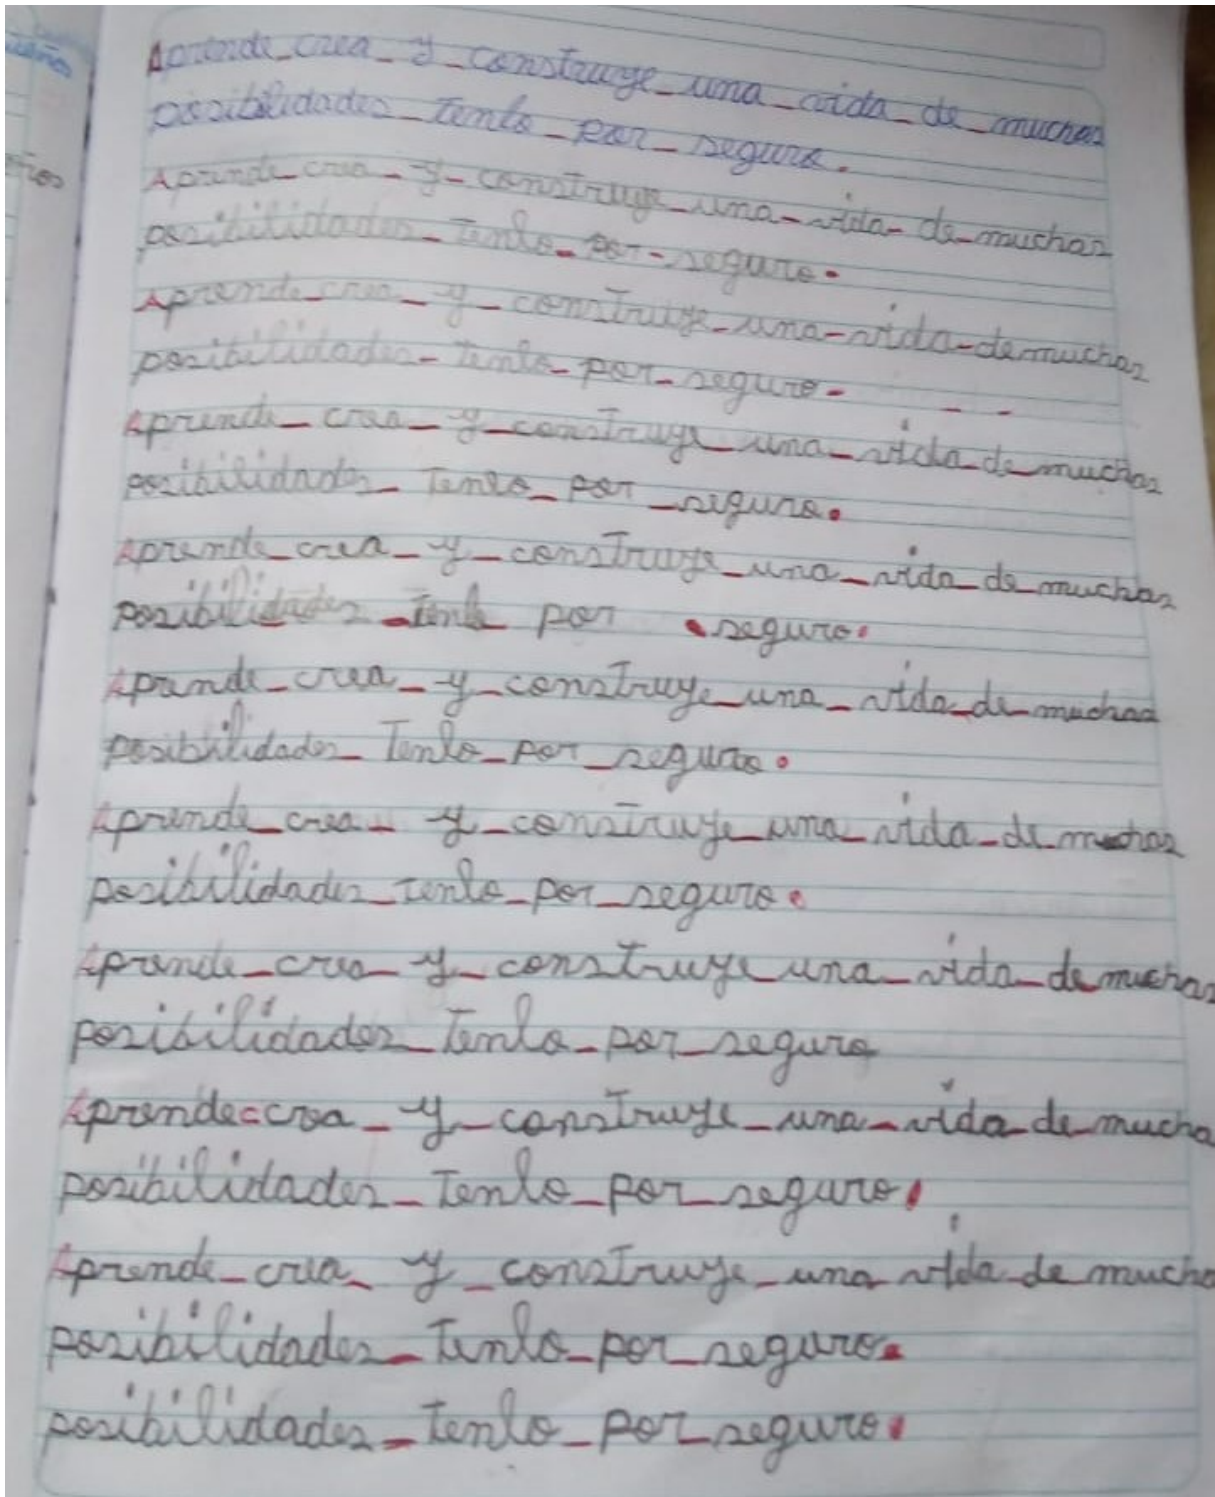 Aprende_crea_y_construye_una_vida_de_muchas
posibilidades_Tenlo_por_seguro.
Aprende_crea_y_construye_una_vida_de_muchas
posibilidades_Tenlo_por_seguro.
Aprende_crea_y_construye_una_vida_de muchas
posibilidades_Tenlo_por_seguro_ _ _
Aprende_crea_y_construye_una_vida_de_muchas
posibilidades_Tenlo_por_seguro.
Aprende_crea_y_construye_una_vida_de_muchas
posibilidades_Tenlo por .seguro.
Aprende_crea_y_construye_una_vida_de_muchas
posibilidades_Tenlo_por_seguro.
Aprende_crea_y_construye_una_vida_de_muchas
posibilidades_Tenlo_por_seguro.
Aprende_crea_y_construye_una_vida_de muchas
posibilidades_Tenlo_por_seguro
Aprende=crea_y_construye_una_vida_de_mucha
posibilidades_Tenlo_por_seguro.
Aprende_crea_y_construye_una_vida_de mucha
posibilidades_Tenlo_por_seguro.
posibilidades_Tenlo_por_seguro.